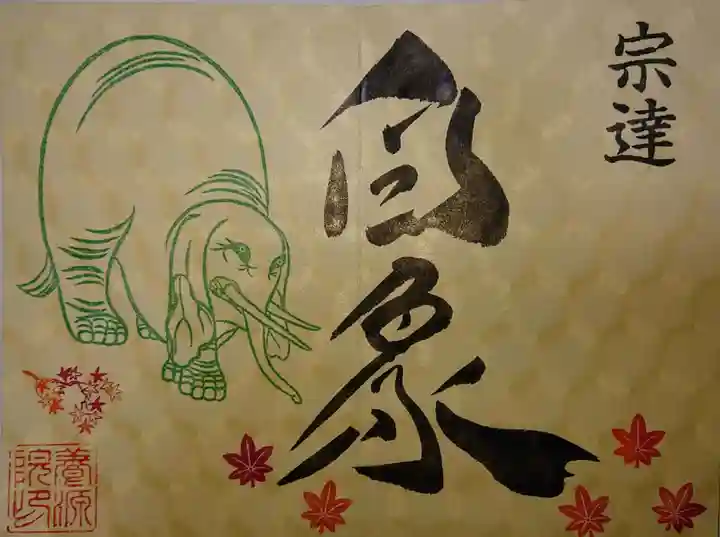 宗達
白象
養源院印